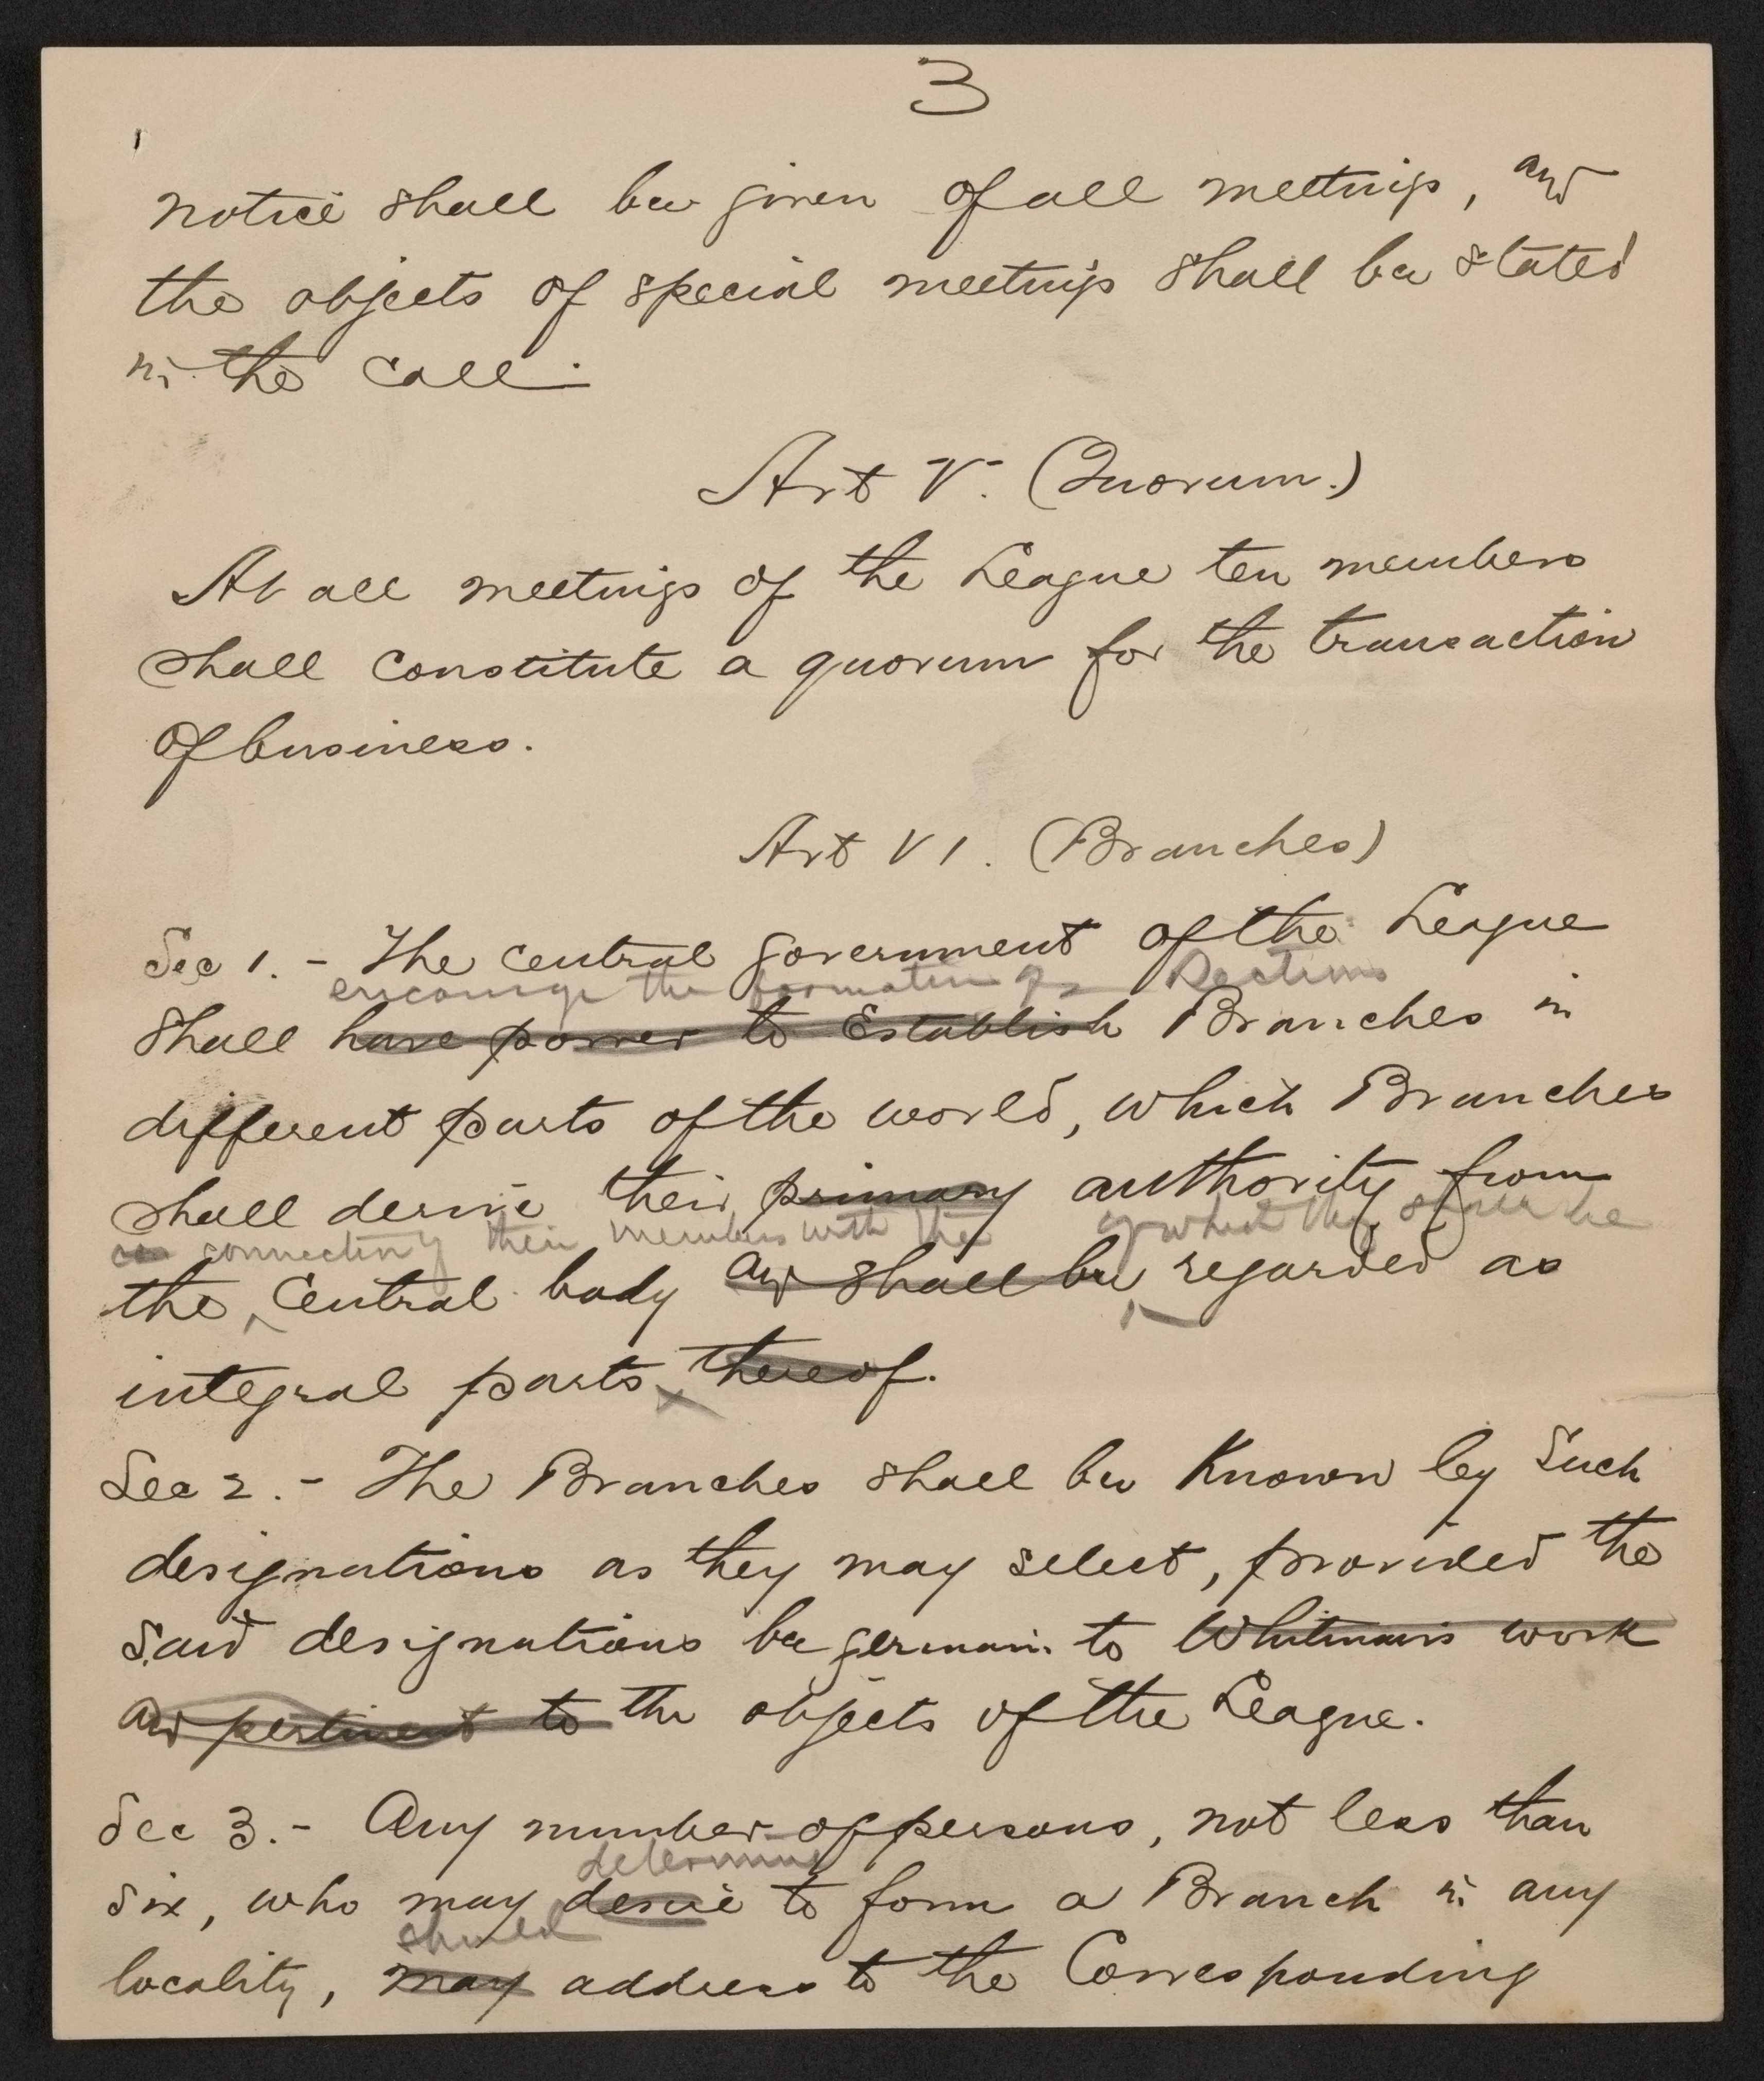 3
notice shall be given of all meetings, and
the objects of special meetings shall be stated
in the call.
Art V. (Quorum.)
At all meetings of the League ten members
shall constitute a quorum for the transaction
of business.
Art VI. (Branches)
Sec 1. - The central government of the League
encourage the formation of Sections
shall have power to Establish Branches in
different parts of the world, which Branches
shall derive their primary authority from
connecting their members with the of which they shall be
the Central body and shall be regarded as
integral parts thereof.
Sec 2. - The Branches shall be Known by Such
designations as they may select, provided the
said designations be germain to Whitman's work
and pertinent to the objects of the League.
Sec 3. - Any number of persons, not less than
determine
six, who may desire to form a Branch in any
should
locality, may address to the Corresponding